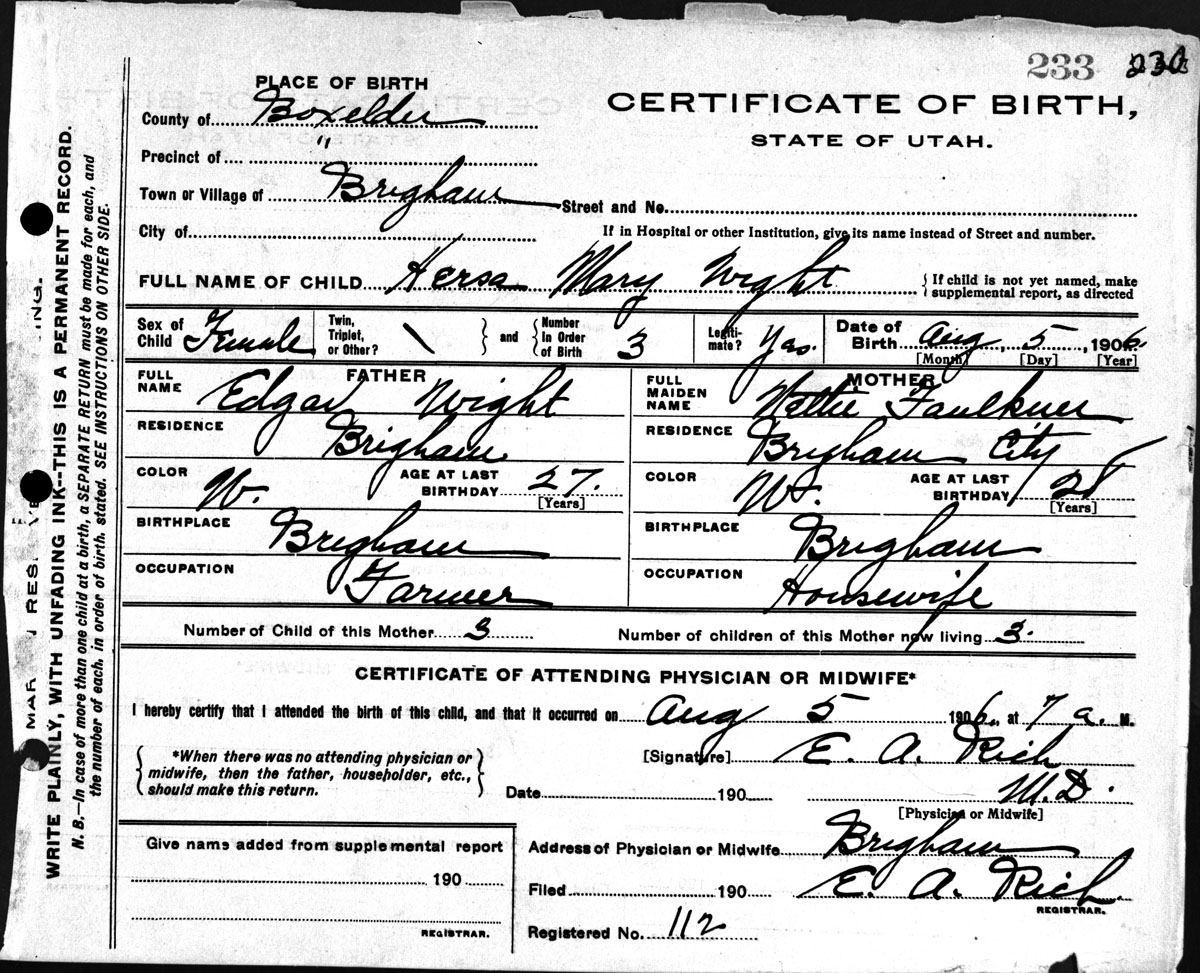 233 230
PLACE OF BIRTH
CERTIFICATE OF BIRTH,
STATE OF UTAH.
County of Boxelder
Precinct of "
Town or Village of Brigham
Street and No.
City of
If in Hospital or other Institution, give its name instead of Street and number.
FULL NAME OF CHILD Hersa Mary Wight
If child is not yet named, make supplemental report, as directed
Sex of Child Female
Twin, Triplet, or Other? \ and Number In Order of Birth 3
Legitimate? Yes.
Date of Birth Aug 5, 1906.
[Month] [Day] [Year]
FATHER
FULL NAME Edgar Wight
RESIDENCE Brigham
COLOR W. AGE AT LAST BIRTHDAY 27. [Years]
BIRTHPLACE Brigham
OCCUPATION Farmer
MOTHER
FULL MAIDEN NAME Nettie Faulkner
RESIDENCE Brigham City
COLOR W. AGE AT LAST BIRTHDAY 28 [Years]
BIRTHPLACE Brigham
OCCUPATION Housewife
Number of Child of this Mother 3 Number of children of this Mother now living 3.
CERTIFICATE OF ATTENDING PHYSICIAN OR MIDWIFE*
I hereby certify that I attended the birth of this child, and that it occurred on Aug 5 1906. at 7 a. M.
*When there was no attending physician or
midwife, then the father, householder, etc.,
should make this return.
[Signature] E. A. Rich
Date 190 M.D.
[Physician or Midwife]
Give name added from supplemental report
190
REGISTRAR.
Address of Physician or Midwife Brigham
Filed 190 E. A. Rich
REGISTRAR.
Registered No. 112
WRITE PLAINLY, WITH UNFADING INK---THIS IS A PERMANENT RECORD.
N. B.—In case of more than one child at a birth, a SEPARATE RETURN must be made for each, and
the number of each, in order of birth, stated. SEE INSTRUCTIONS ON OTHER SIDE.